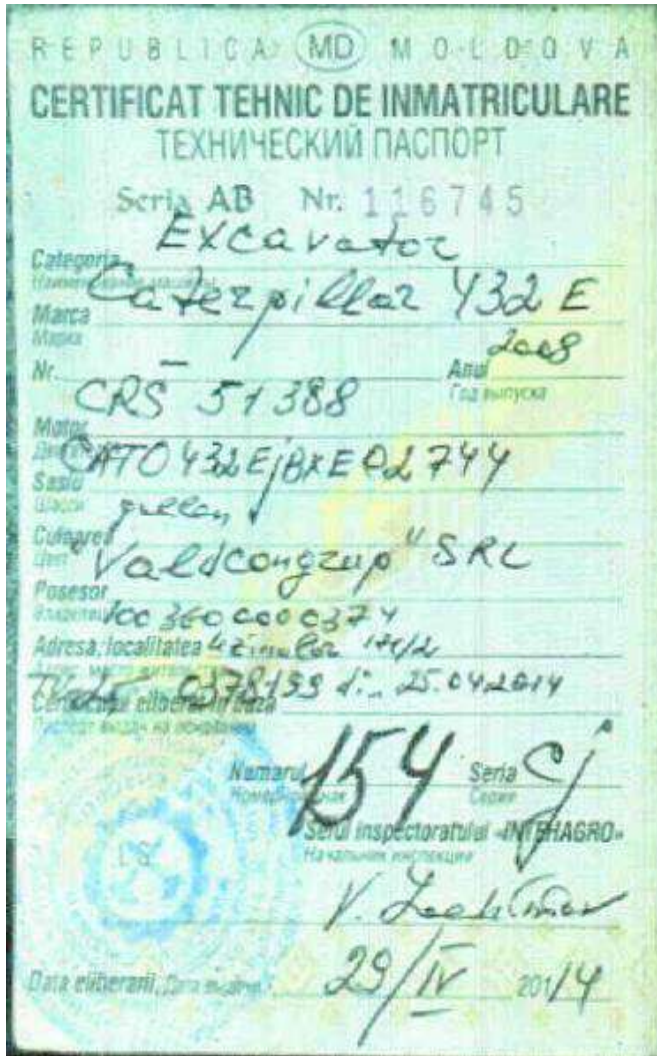 REPUBLICA MD MOLDOVA
CERTIFICAT TEHNIC DE INMATRICULARE
ТЕХНИЧЕСКИЙ ПАСПОРТ
Seria AB Nr. 116745
Excavator
Categoria
Наименование машины
Caterpillar 432 E
Marca
Марка
2008
Nr. — Anul
Год выпуска
CRS 51388
Motor
CAT0432EjBXE02744
Sasiu
Шасси
Culoarea
Цвет
"Valdcongrup" SRL
Posesor
Владелец
1003600000374
Adresa, localitatea Uzinelor
0378199 din 25.04.2014
Certificatul eliberat in baza
Паспорт выдан на основании
Numarul 154 Seria Cj
Серия
Seful inspectoratului «INTEHAGRO»
Начальник инспекции
L.S.
V.
Data eliberarii, Дата выдачи 29/IV 2014